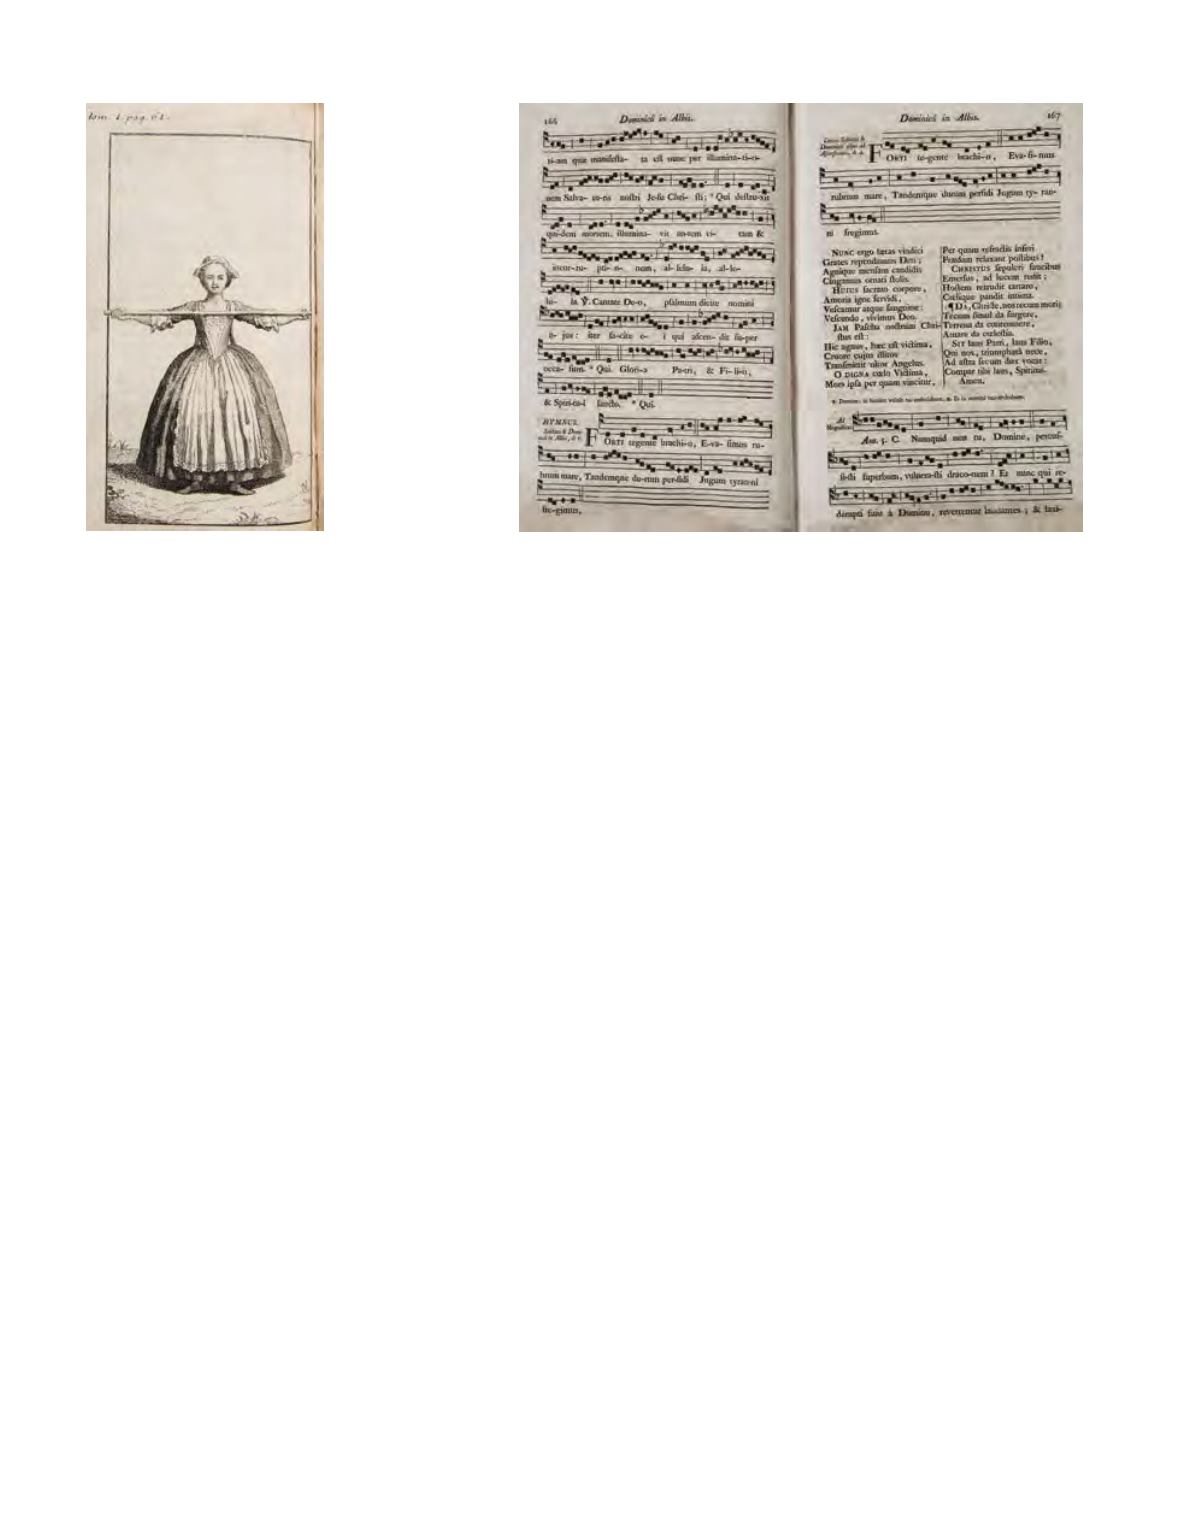 Tom. 1. pag. 61.
166
Dominica in Albis.
ti-am quæ manifesta- ta est nunc per illumina-ti-o-
nem Salva- to-ris nostri Je-su Chri- sti; * Qui destru-xit
qui-dem mortem, illumina- vit au-tem vi- tam &
incor-ru- pti- o- nem, al- lelu- ia, al-le-
lu- ia ℣. Cantate De-o, psalmum dicite nomini
e- jus: iter fa-cite e- i qui ascen- dit su-per
occa- sum. * Qui. Glori-a Pa-tri, & Fi- li-o,
& Spiri-tu-i sancto. * Qui.
HYMNUS.
FORTI tegente brachi-o, E-va- simus ru-
brum mare, Tandemque du-rum per-fidi Jugum tyran-ni
fre-gimus,
Dominica in Albis.
167
FORTI te-gente brachi-o, Eva-si-mus
rubrum mare, Tandemque durum perfidi Jugum ty- ran-
ni fregimus.
NUNC ergo lætas vindici
Grates rependamus Deo;
Agnique mensam candidis
Cingamus ornati stolis.
HUJUS sacrato corpore,
Amoris igne fervidi,
Vescamur atque sanguine:
Vescendo, vivimus Deo.
JAM Pascha nostrum Chri-
stus est:
Hic agnus, hæc est victima,
Cruore cujus illitos
Transmittit ultor Angelus.
O DIGNA cœlo Victima,
Mors ipsa per quam vincitur,
Per quam refractis inferi
Prædam relaxant postibus!
CHRISTUS sepulcri faucibus
Emersus, ad lucem redit;
Hostem retrudit tartaro,
Cœlique pandit intima.
¶ DA, Christe, nos tecum mori;
Tecum simul da surgere,
Terrena da contemnere,
Amare da cœlestia.
SIT laus Patri, laus Filio,
Qui nos, triumphatâ nece,
Ad astra secum dux vocat:
Compar tibi laus, Spiritus.
Amen.
Ad
Magnificat.
Ant. 5. C. Numquid non tu, Domine, percus-
si-sti superbum, vulnera-sti draco-nem? Et nunc qui re-
dempti sunt à Domino, revertentur laudantes; & læti-